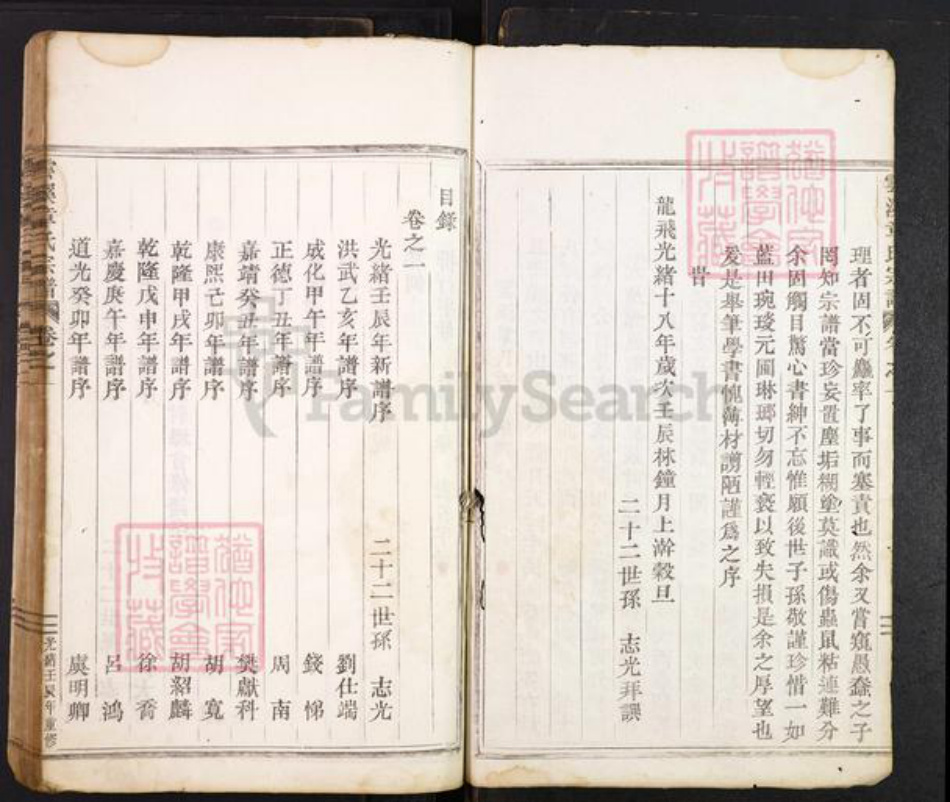 理者固不可麤率了事而塞責也然余又嘗窺愚蠢之子
罔知宗譜當珍妄置塵垢糊塗莫識或傷蟲鼠粘連難分
余固觸目驚心書紳不忘惟願後世子孫敬謹珍惜一如
藍田琬琰元圃琳瑯切勿輕褻以致失損是余之厚望也
爰是舉筆學書愧薄材謭陋謹爲之序
旹
龍飛光緒十八年歲次壬辰林鐘月上澣穀旦
二十二世孫 志光拜譔
目錄
卷之一
光緒壬辰年新譜序 二十二世孫 志光
洪武乙亥年譜序 劉仕端
成化甲午年譜序 錢悌
正德丁丑年譜序 周南
嘉靖癸丑年譜序 樊獻科
康熙己卯年譜序 胡寬
乾隆甲戌年譜序 胡紹麟
乾隆戊申年譜序 徐喬
嘉慶庚午年譜序 呂鴻
道光癸卯年譜序 虞明卿
氏宗譜 卷之一
光緒壬辰年重修
FamilySearch